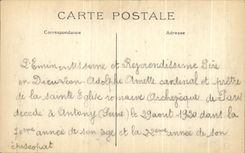 CARTE POSTALE
Correspondance
Adresse
L'Eminentissime et Reverendissime Père
en Dieu Léon Adolphe Amette cardinal et prêtre
de la sainte Eglise romaine Archevêque de Paris
décédé à Antony (Seine) le 29 août 1920 dans la
année de son âge et la 22ème année de son
épiscopat